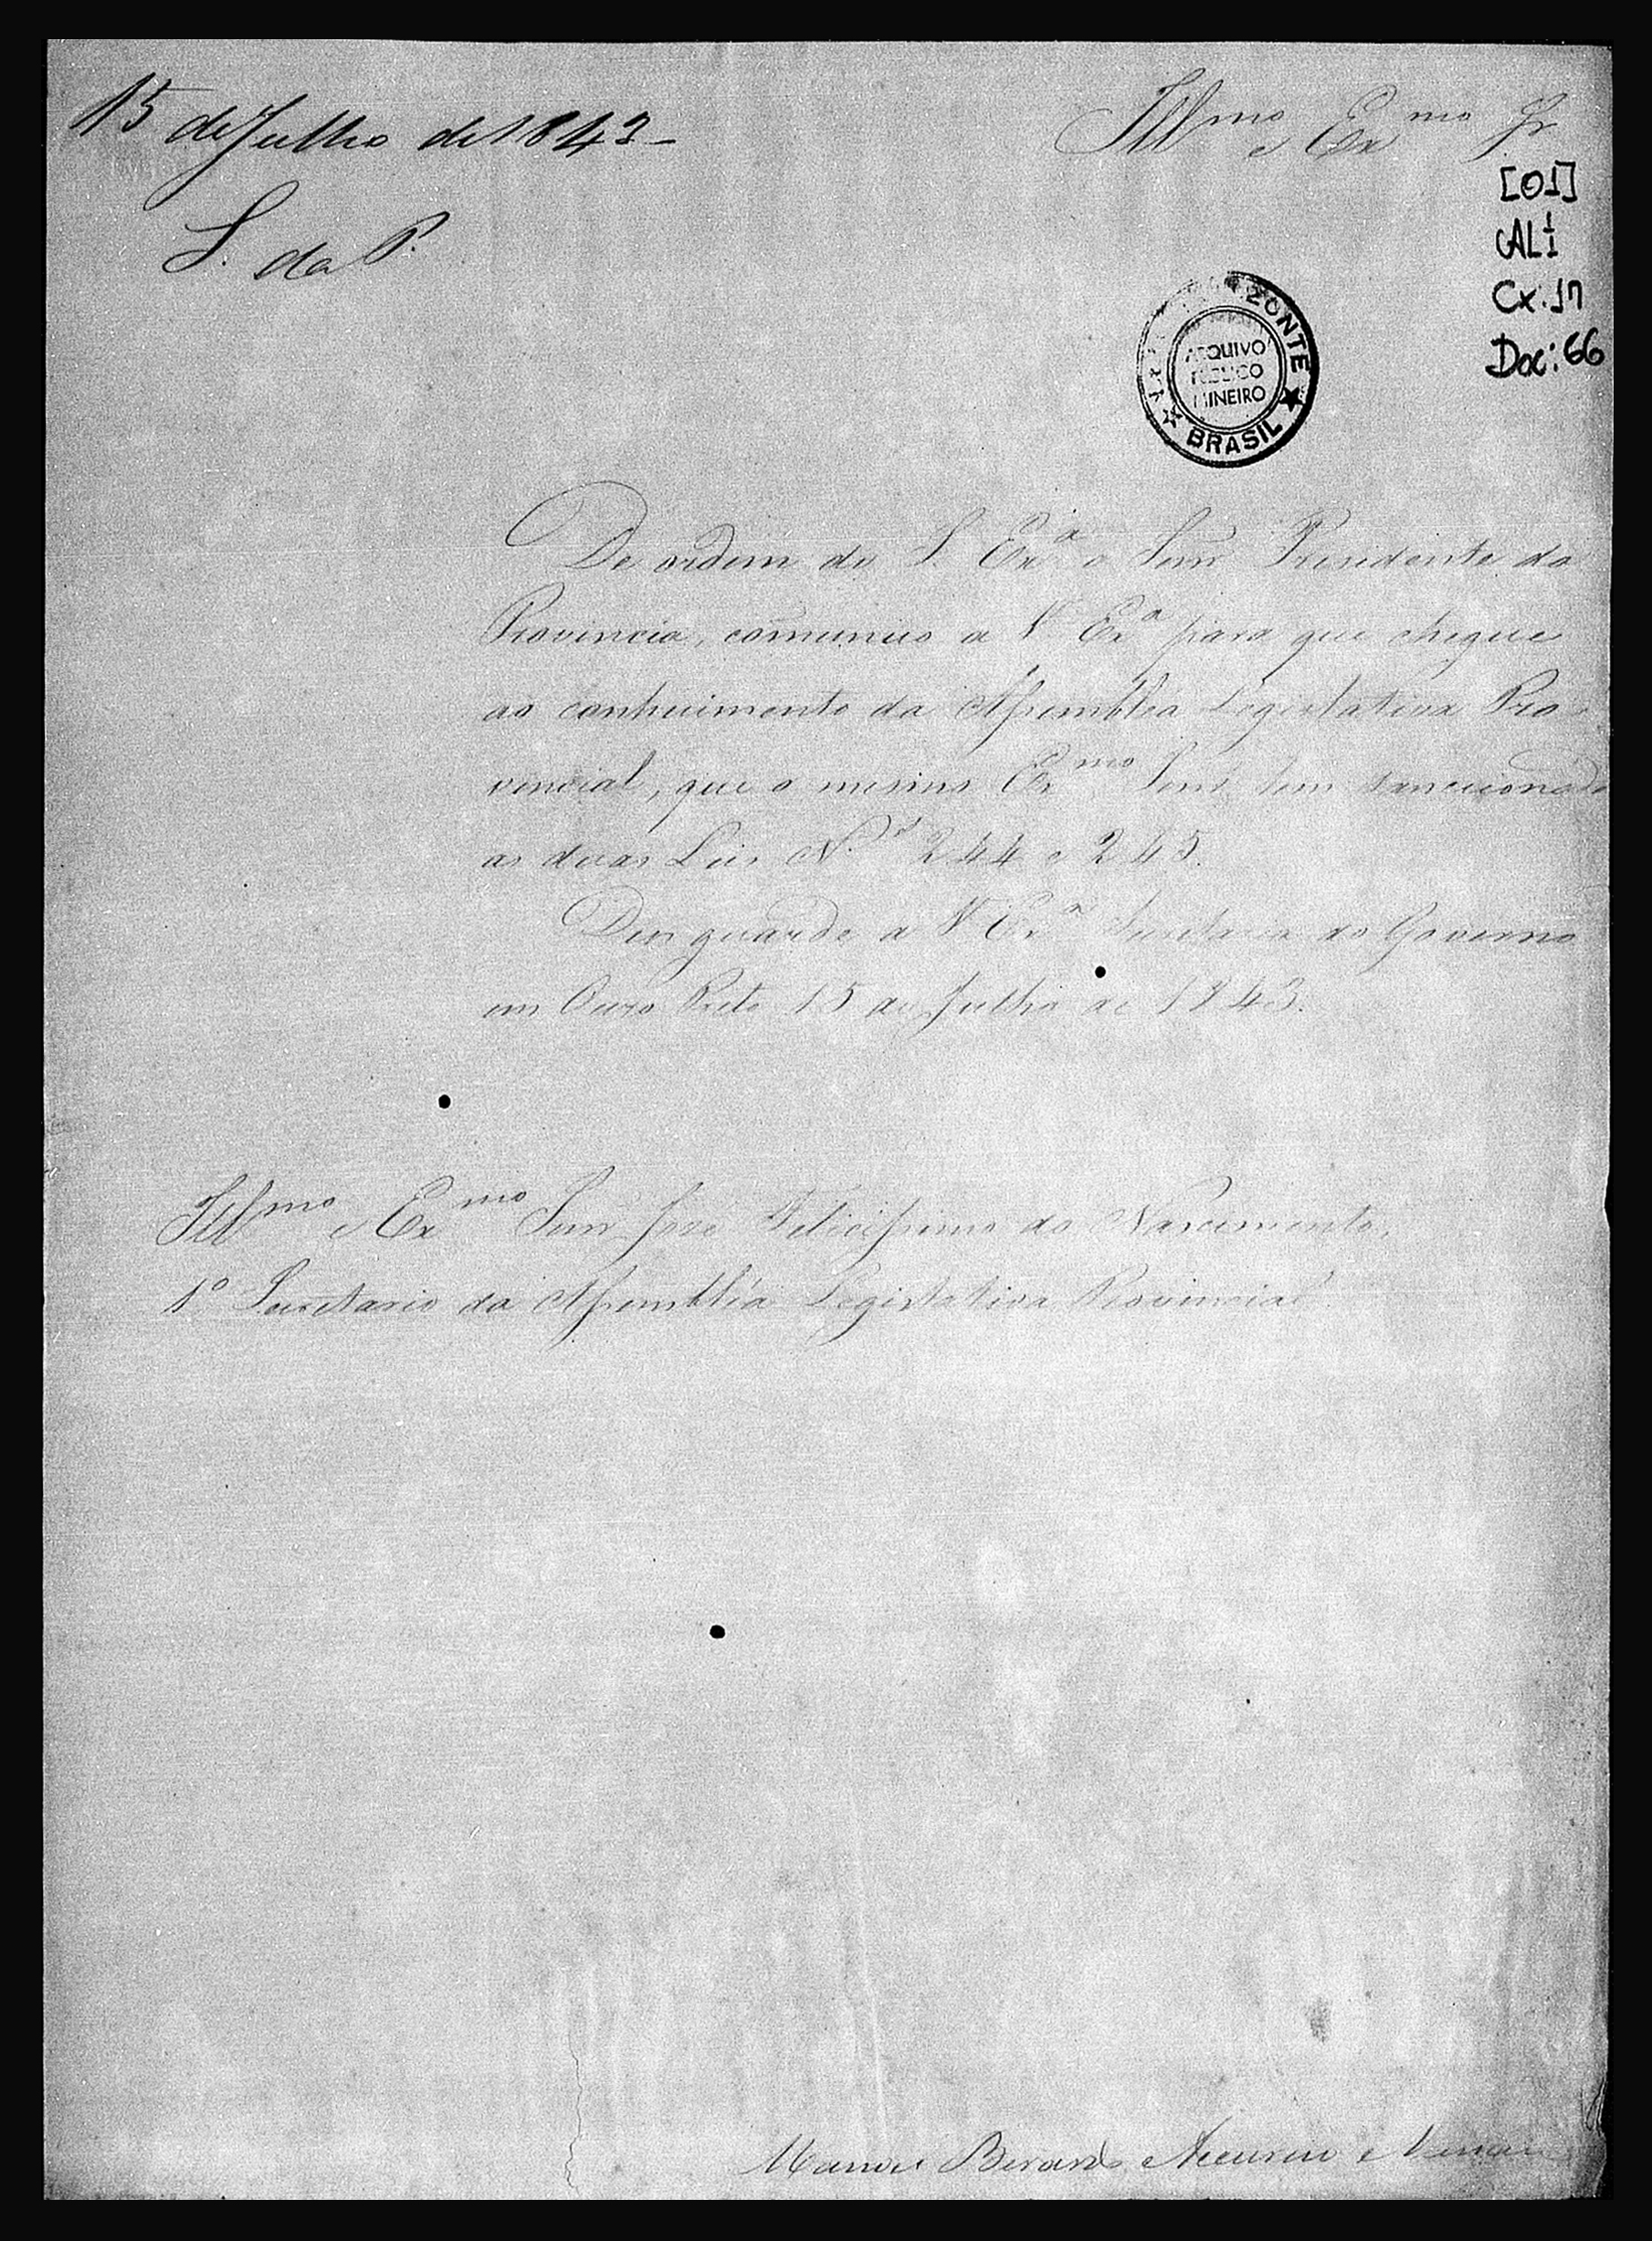 15 de Julho de 1843 -
Illmo e Exmo Sr
[01]
AL 1/1
Cx: 17
Doc: 66
S. da P.
ZONTE
ARQUIVO
PUBLICO
MINEIRO
BRASIL
De ordem de S. Exa o Senr Presidente da
Provincia, cõmunico a V Exa para que chegue
ao conhecimento da Assembléa Legislativa Pro-
vincial, que o mesmo Exmo Senr tem sanccionado
as duas Leis N.os 244 e 245.
Deos guarde a V Exa Secretaria do Governo
em Ouro Preto 15 de Julho de 1843.
Illmo e Exmo Senr Joze Felicissimo do Nascimento,
1º Secretario da Assembléa Legislativa Provincial
Manoel Berardo Accursio